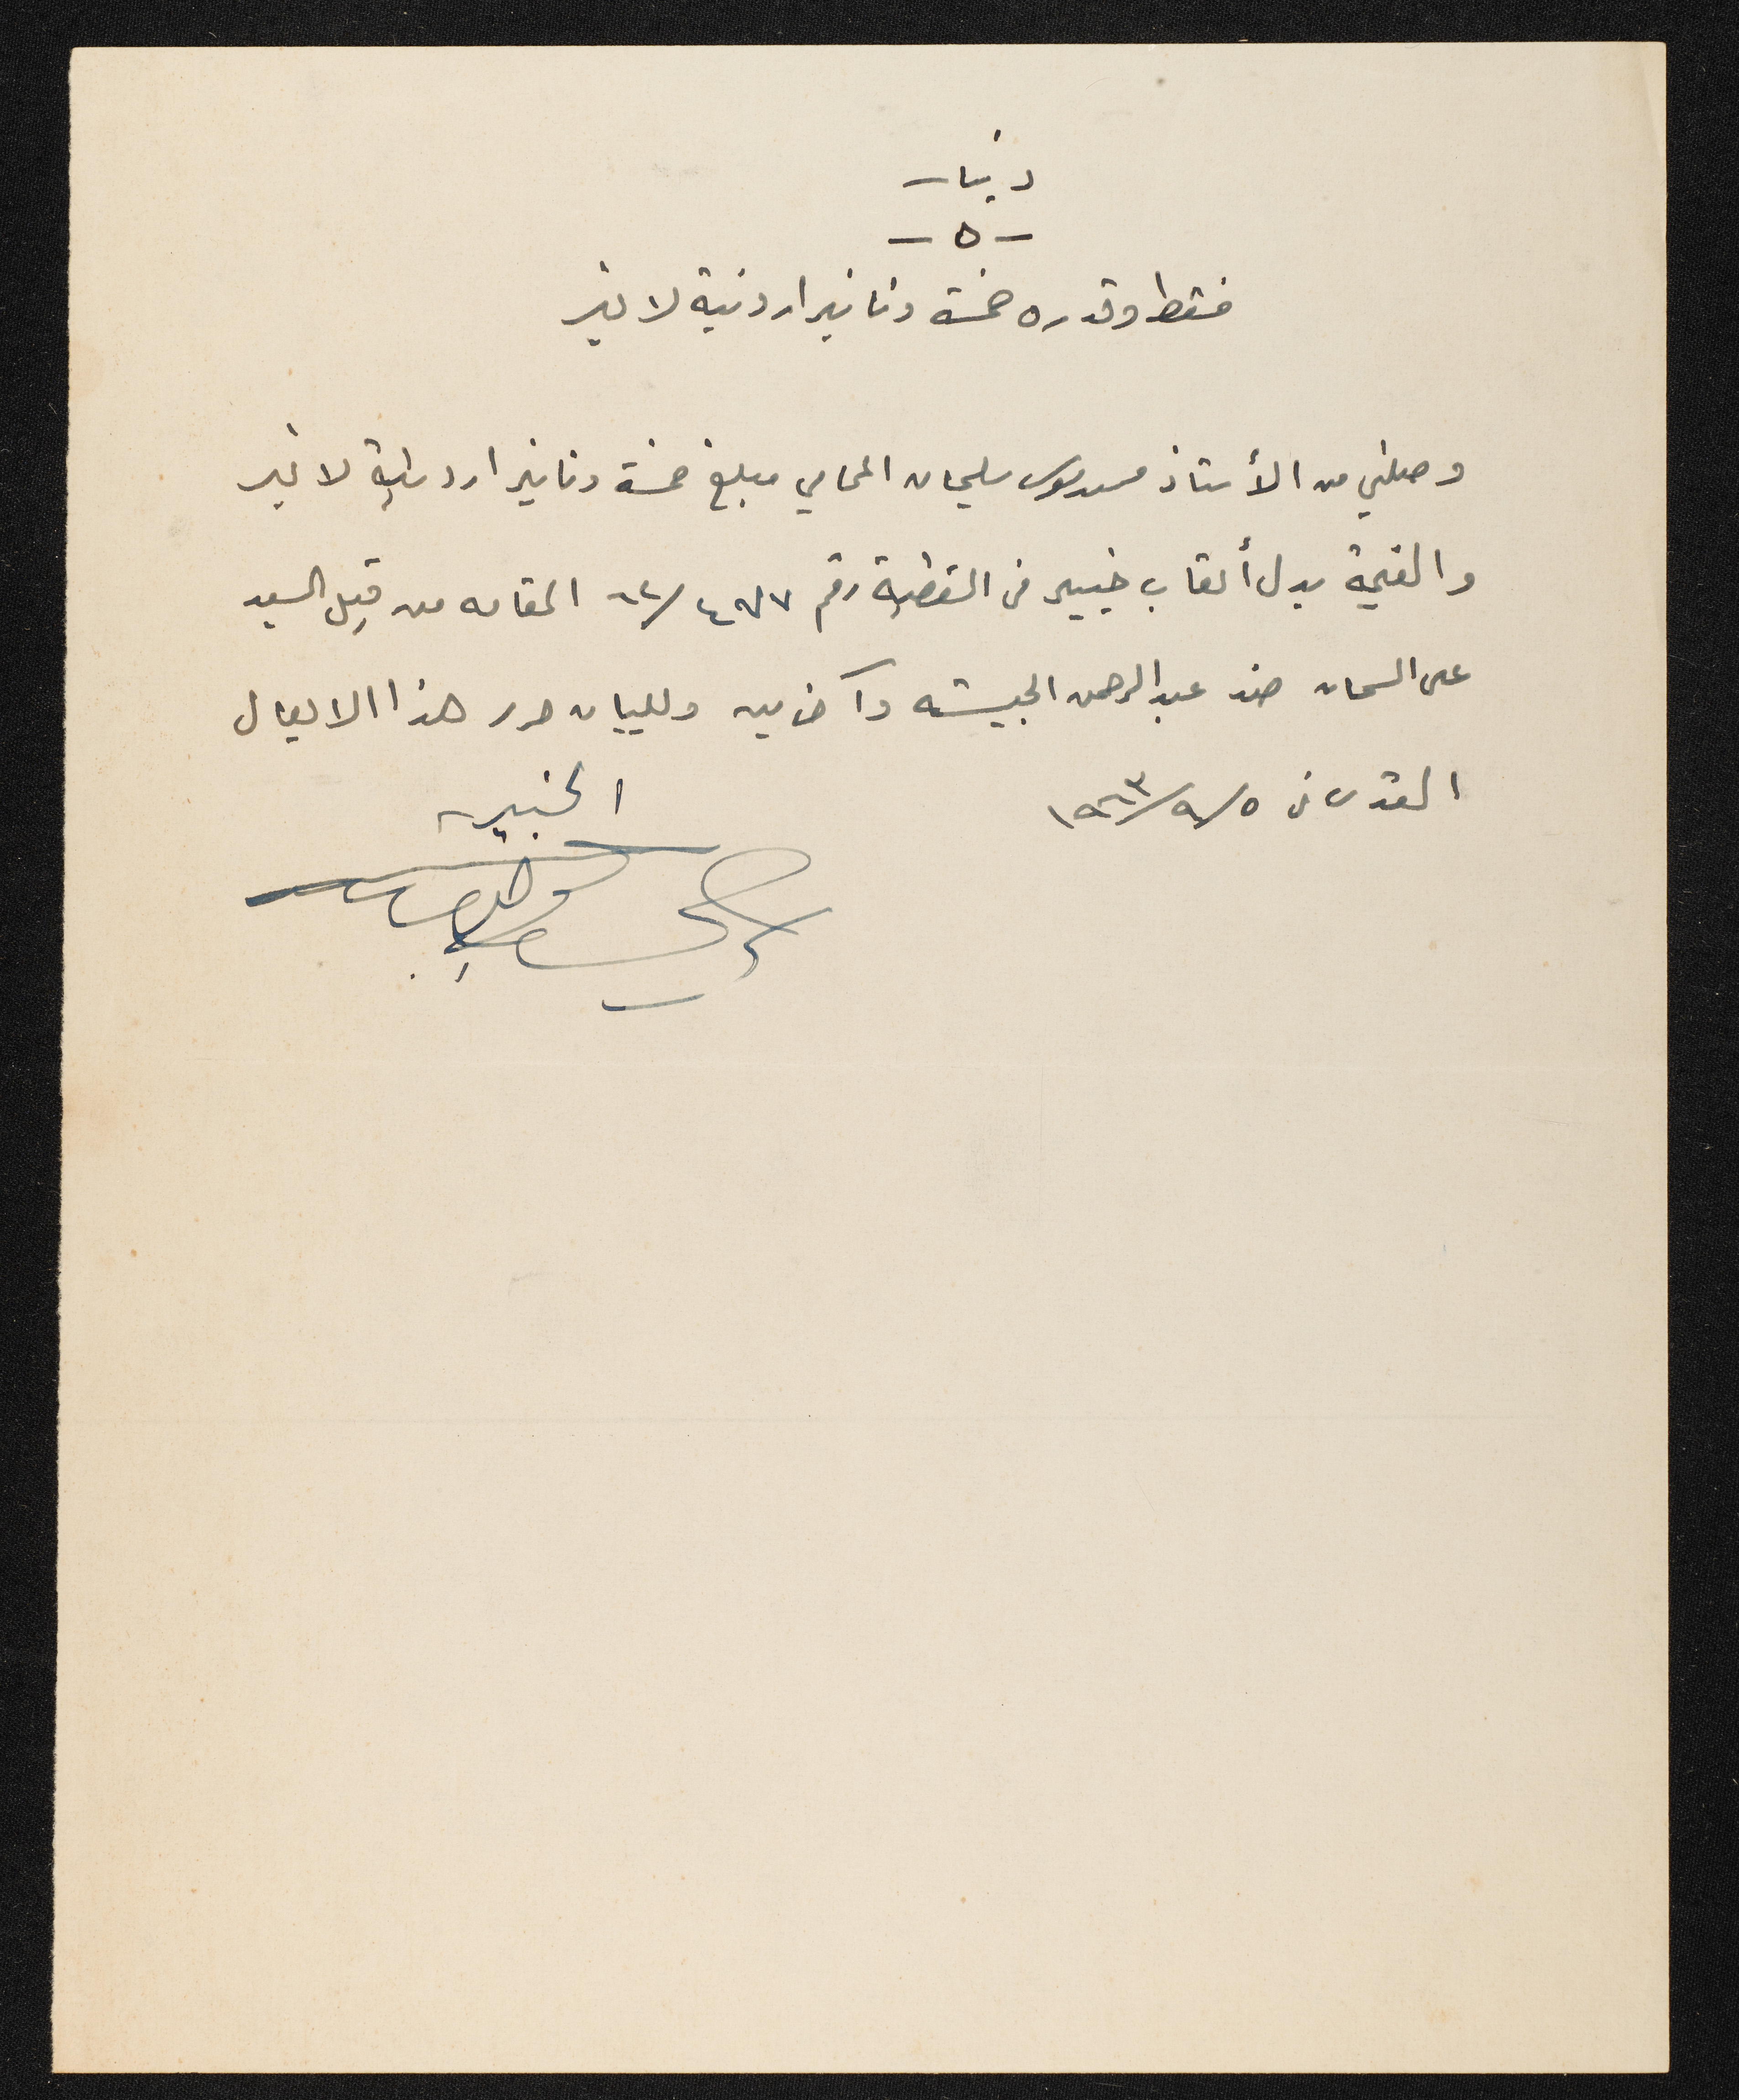 دينار
-٥-
فقط وقدره خمسة دنانير اردنية لا غير
وصلني من الأستاذ سليمان المحامي مبلغ خمسة دنانير اردنية لا غير
والقيمة بدل أتعاب خبير في القضية رقم المقامه من قِبل السيد
علي السمان ضد عبدالرحمن الجيشه وآخرين وللبيان حرر هذا الايصال
القدس في ١٩٦٣/٩/٥
الخبير